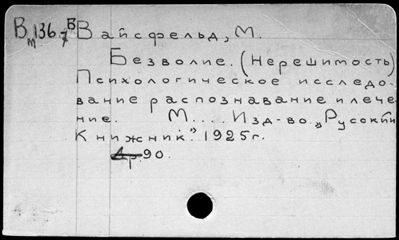 Вм136.7В Вайсфельд, М.
Безволие. (Нерешимость)
Психологическое исследо-
вание распознавание и лече-
ние. М.... Изд-во. „Русский
Книжник". 1925г.
Др. 90.